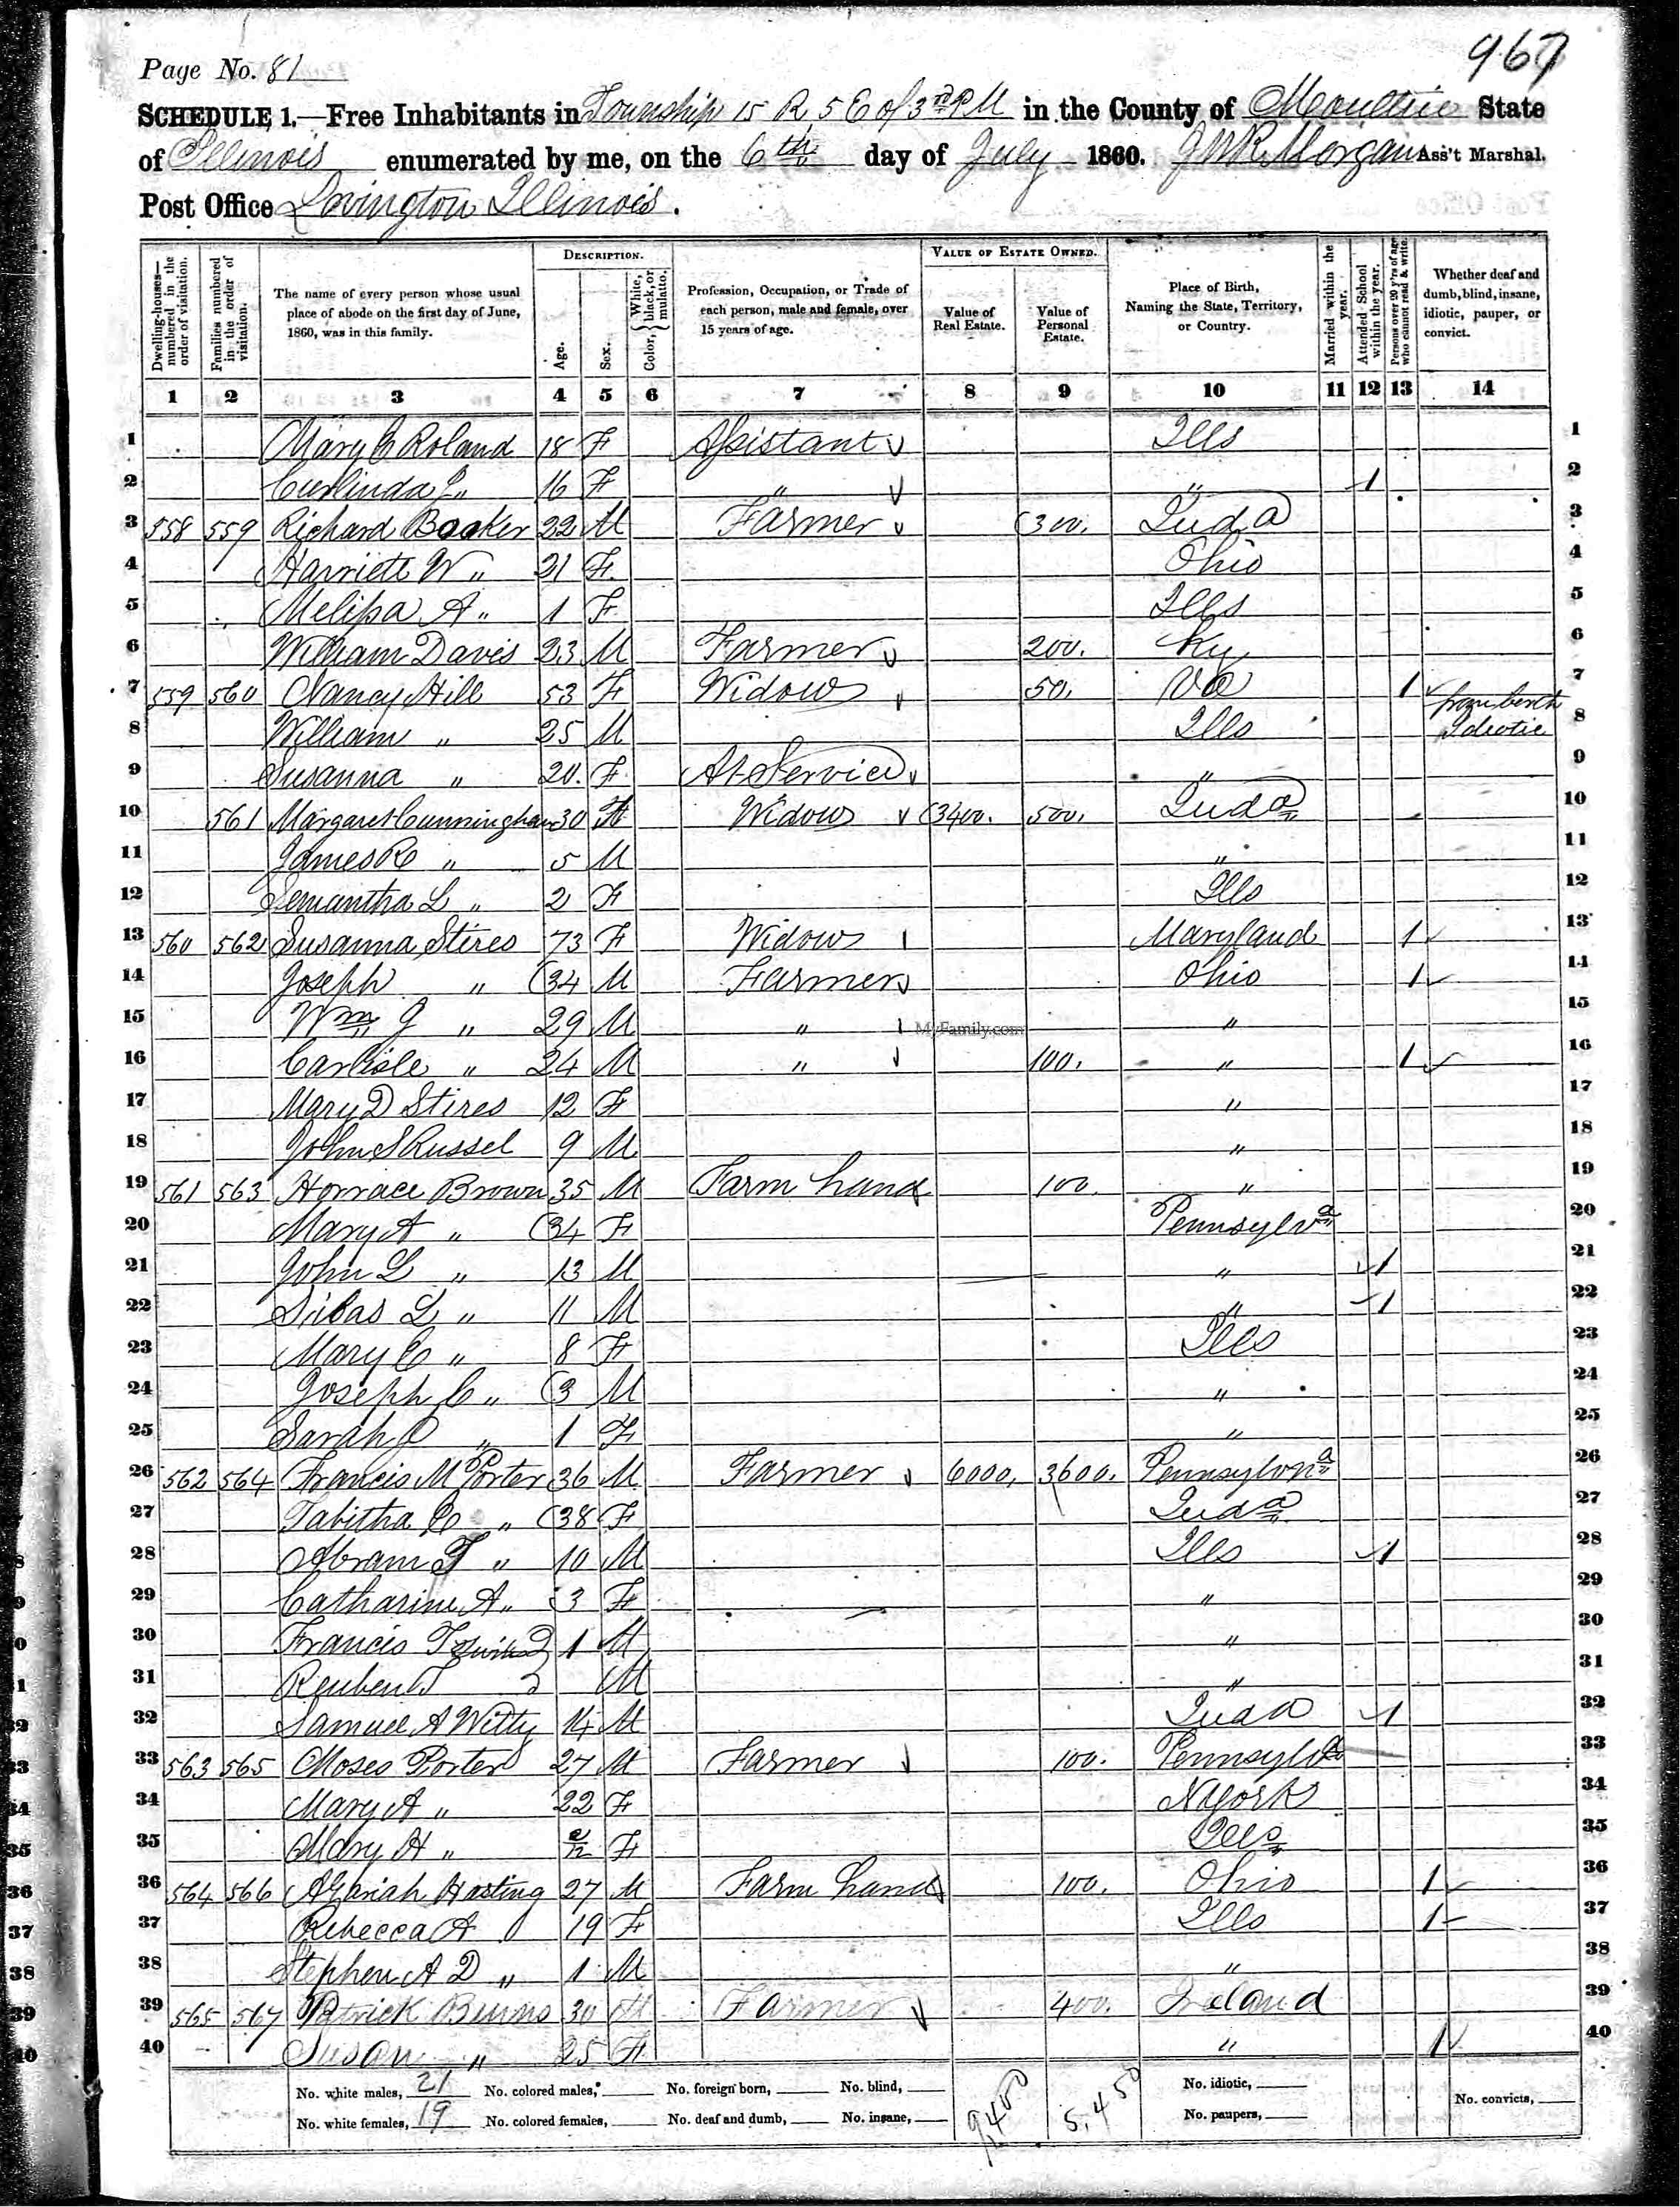 967
Page No. 81
SCHEDULE 1.—Free Inhabitants in Township 15 R 5 E of 3rd PM in the County of Moultrie State
of Illinois enumerated by me, on the 6th day of July 1860. J W R Morgan Ass't Marshal.
Post Office Lovington Illinois.
Dwelling-houses—numbered in the order of visitation. Families numbered in the order of visitation. The name of every person whose usual place of abode on the first day of June, 1860, was in this family. DESCRIPTION. Age. Sex. Color, White, black, or mulatto. Profession, Occupation, or Trade of each person, male and female, over 15 years of age. VALUE OF ESTATE OWNED. Value of Real Estate. Value of Personal Estate. Place of Birth, Naming the State, Territory, or Country. Married within the year. Attended School within the year. Persons over 20 y'rs of age who cannot read & write. Whether deaf and dumb, blind, insane, idiotic, pauper, or convict.
1 2 3 4 5 6 7 8 9 10 11 12 13 14
1 Mary C Roland 18 F Assistant Ills 1
2 16 F " " 1 2
3 558 559 Richard Booker 22 M Farmer 300. Inda 3
4 Harriett W " 21 F Ohio 4
5 Melissa A " 1 F Ills 5
6 William Davis 23 M Farmer 200. Ky 6
7 559 560 Nancy Hill 53 F Widow 50. Va 1 7
8 William " 25 M Ills from berth Idiotic 8
9 Susanna " 20. F At Service " 9
10 561 Margaret Cunningham 30 F Widow 3400. 500. Inda 10
11 James R " 5 M " 11
12 Semantha L " 2 F Ills 12
13 560 562 Susanna Stires 73 F Widow Maryland 1 13
14 Joseph " 34 M Farmer Ohio 1 14
15 Wm J " 29 M " " 15
MyFamily.com
16 Carlisle " 24 M " 100. " 1 16
17 Mary D Stires 12 F " 17
18 John S Russel 9 M " 18
19 561 563 Horrace Brown 35 M Farm hand 100. " 19
20 Mary A " 34 F Pennsylva 20
21 John L " 13 M " 1 21
22 Silas L " 11 M " 1 22
23 Mary C " 8 F Ills 23
24 Joseph C " 3 M " 24
25 Sarah J " 1 F " 25
26 562 564 Francis M Porter 36 M Farmer 6000. 3600. Pennsylvna 26
27 Tabitha C " 38 F Inda 27
28 Abram T " 10 M Ills 1 28
29 Catharine A " 3 F " 29
30 Francis T 1 M " 30
31 Reuben M " 31
32 Samuel A Witty 14 M Inda 1 32
33 563 565 Moses Porter 27 M Farmer 100. Pennsylva 33
34 Mary A " 22 F N York 34
35 Mary H " F Ills 35
36 564 566 Azariah Hasting 27 M Farm hand 100. Ohio 1 36
37 Rebecca A 19 F Ills 1 37
38 Stephen A D " 1 M " 38
39 565 567 Patrick Burns 30 M Farmer 400. Ireland 39
40 Susan " 25 F " 1 40
No. white males, 21 No. colored males, No. foreign born, No. blind, 9,400 5,450 No. idiotic,
No. white females, 19 No. colored females, No. deaf and dumb, No. insane, No. paupers, No. convicts,